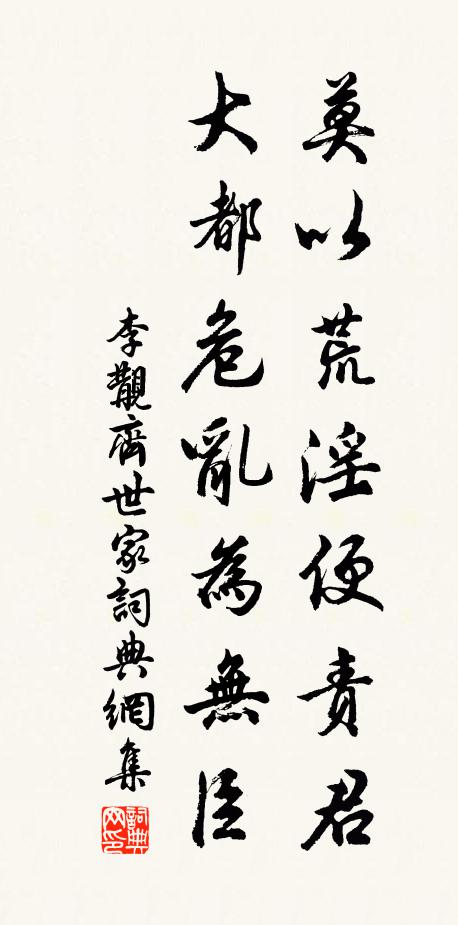 莫以荒淫便責君
大都危亂為無臣
李覯齊世家詞典網集
詞典网印